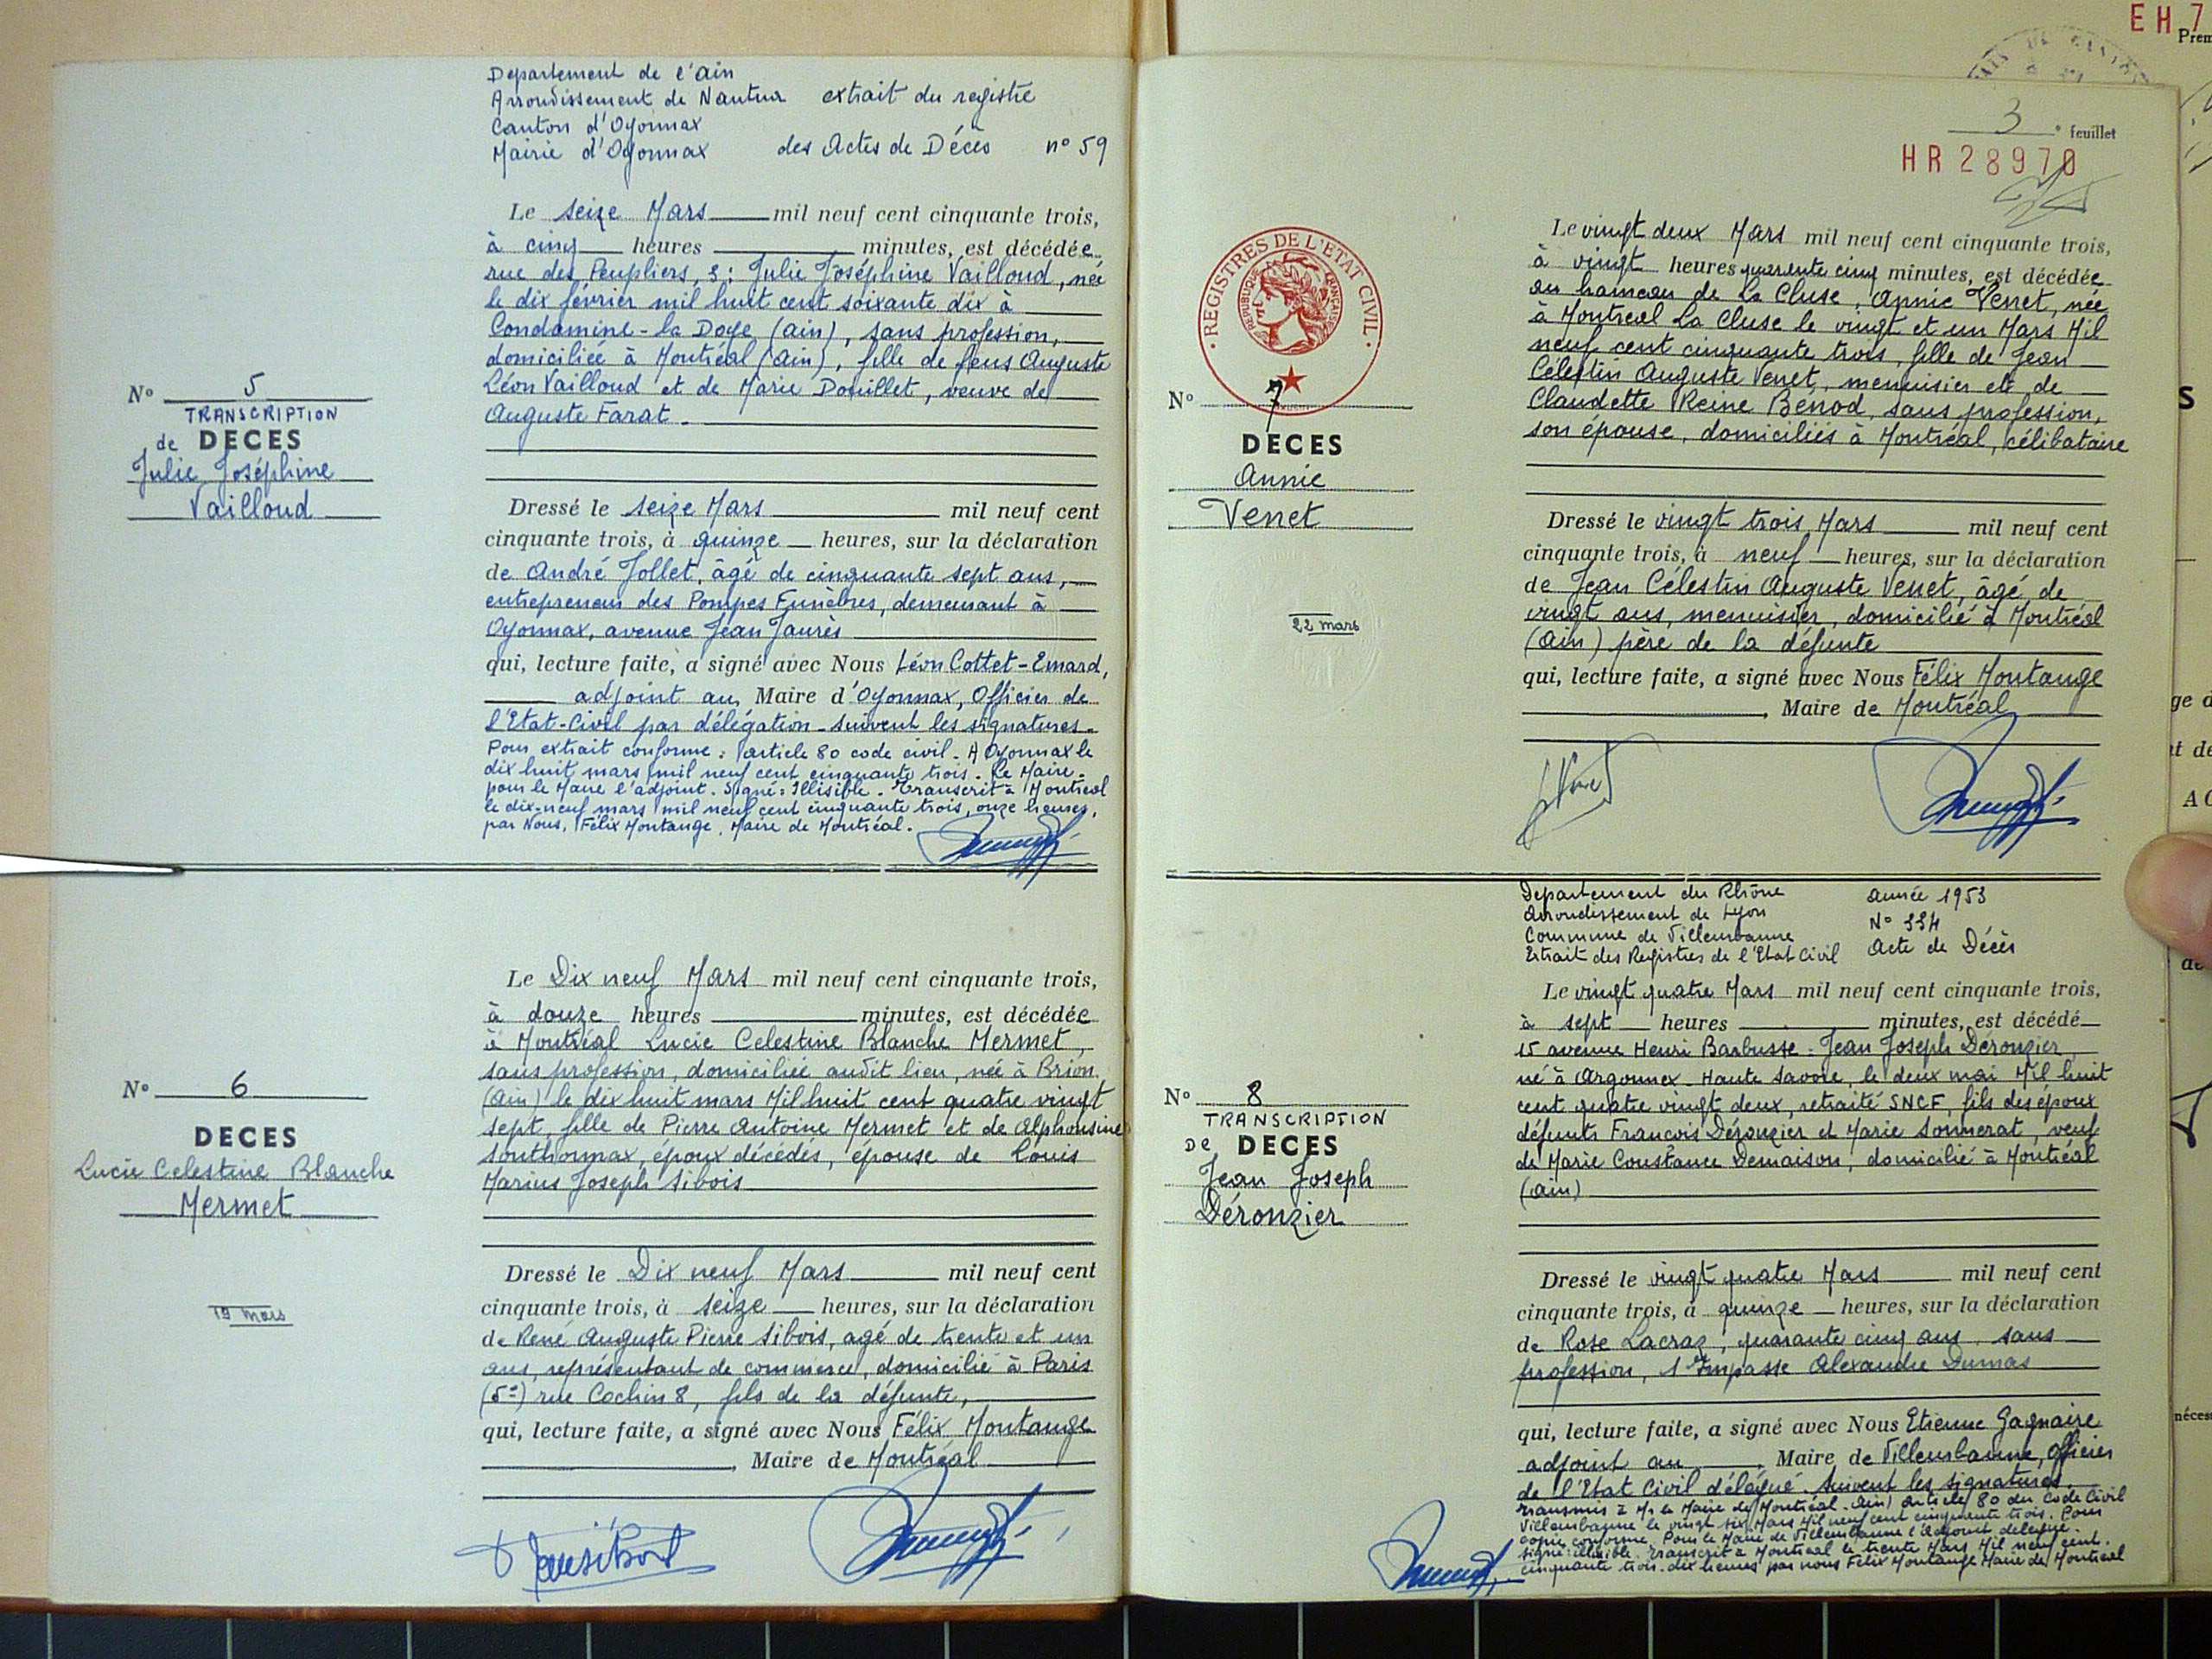 Departement de l'Ain
Arrondissement de Nantua extrait du registre
Canton d'Oyonnax
Mairie d'Oyonnax des Actes de Décès n° 59
Le seize Mars mil neuf cent cinquante trois,
à cinq heures minutes, est décédée
rue des Peupliers, 3: Julie Joséphine Vailloud, née
le dix février mil huit cent soixante dix à
Condamine-la Doye (Ain), sans profession,
domiciliée à Montréal (Ain), fille de feus Auguste
Léon Vailloud et de Marie Douillet, veuve de
Auguste Farat.
N° 5
TRANSCRIPTION
de DECES
Julie Joséphine
Vailloud
Dressé le seize Mars mil neuf cent
cinquante trois, à quinze heures, sur la déclaration
de André Jollet, âgé de cinquante sept ans,
entrepreneur des Pompes Funèbres, demeurant à
Oyonnax, avenue Jean Jaurès
qui, lecture faite, a signé avec Nous Léon Cottet-Emard,
adjoint au Maire d'Oyonnax, Officier de
l'Etat-Civil par délégation - suivent les signatures.
Pour extrait conforme : article 80 code civil - A Oyonnax le
dix huit mars mil neuf cent cinquante trois. Le Maire.
pour le Maire l'adjoint. Signé : Illisible - Transcrit à Montréal
le dix-neuf mars mil neuf cent cinquante trois, onze heures,
par Nous, Félix Montange, Maire de Montréal.
Le Dix neuf Mars mil neuf cent cinquante trois,
à douze heures minutes, est décédée
à Montréal Lucie Celestine Blanche Mermet,
sans profession, domiciliée audit lieu, née à Brion
(Ain) le dix huit mars Mil huit cent quatre vingt
sept, fille de Pierre Antoine Mermet et de Alphonsine
Southonnax, époux décédés, épouse de Louis
Marius Joseph Sibois
N° 6
DECES
Lucie Celestine Blanche
Mermet
19 mars
Dressé le Dix neuf Mars mil neuf cent
cinquante trois, à seize heures, sur la déclaration
de René Auguste Pierre Sibois, agé de trente et un
ans, représentant de commerce, domicilié à Paris
(5e) rue Cochin 8, fils de la défunte,
qui, lecture faite, a signé avec Nous Félix Montange
, Maire de Montréal
EH 7
Prem
3e feuillet
HR 28970
Le vingt deux Mars mil neuf cent cinquante trois,
à vingt heures quarente cinq minutes, est décédée
au hameau de La Cluse, Annie Venet, née
à Montreal La Cluse le vingt et un Mars Mil
neuf cent cinquante trois, fille de Jean
Célestin Auguste Venet, menuisier et de
Claudette Reine Bénod, sans profession,
son épouse, domiciliés à Montréal, célibataire
REGISTRES DE L'ETAT CIVIL
REPUBLIQUE FRANÇAISE
N° 7
DECES
Annie
Venet
22 mars
Dressé le vingt trois Mars mil neuf cent
cinquante trois, à neuf heures, sur la déclaration
de Jean Célestin Auguste Venet, âgé de
vingt ans, menuisier, domicilié à Montréal
(Ain) père de la défunte
qui, lecture faite, a signé avec Nous Félix Montange
, Maire de Montréal
Departement du Rhône Année 1953
Arrondissement de Lyon N° 334
Commune de Villeurbanne
Extrait des Registres de l'Etat Civil Acte de Décès
Le vingt quatre Mars mil neuf cent cinquante trois,
à sept heures minutes, est décédé
15 avenue Henri Barbusse : Jean Joseph Deronzier
né à Argonnex - Haute Savoie, le deux mai Mil huit
cent quatre vingt deux, retraité SNCF, fils des époux
défunts François Déronzier et Marie Sonnerat, veuf
de Marie Constance Demaison, domicilié à Montréal
(Ain)
N° 8
TRANSCRIPTION
De DECES
Jean Joseph
Déronzier
Dressé le vingt quatre Mars mil neuf cent
cinquante trois, à quinze heures, sur la déclaration
de Rose Lacraz, quarante cinq ans, sans
profession, 1 Impasse Alexandre Dumas
qui, lecture faite, a signé avec Nous Etienne Gagnaire
adjoint au , Maire de Villeurbanne, officier
de l'Etat Civil délégué. Suivent les signatures
Transmis à Mr le Maire de Montréal (Ain) article 80 du Code Civil
Villeurbanne le vingt six Mars Mil neuf cent cinquante trois. Pour
copie conforme. Pour le Maire de Villeurbanne l'Adjoint délégué.
signé : illisible. Transcrit à Montréal le trente Mars Mil neuf cent
cinquante trois. dix heures par nous Félix Montange Maire de Montréal